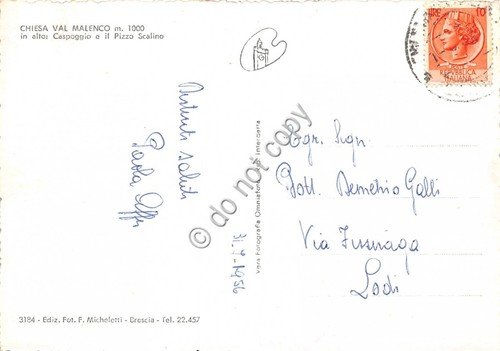 CHIESA VAL MALENCO m. 1000
in alto: Caspoggio e il Pizzo Scalino
Distinti saluti
Paola
31.7.1956
Vera Fotografia
Egr. Sign.
Dott. Demetrio Galli
Via Fissiraga
Lodi
3184 - Ediz. Fot. F. Micheletti - Brescia - Tel. 22.457
© do not copy